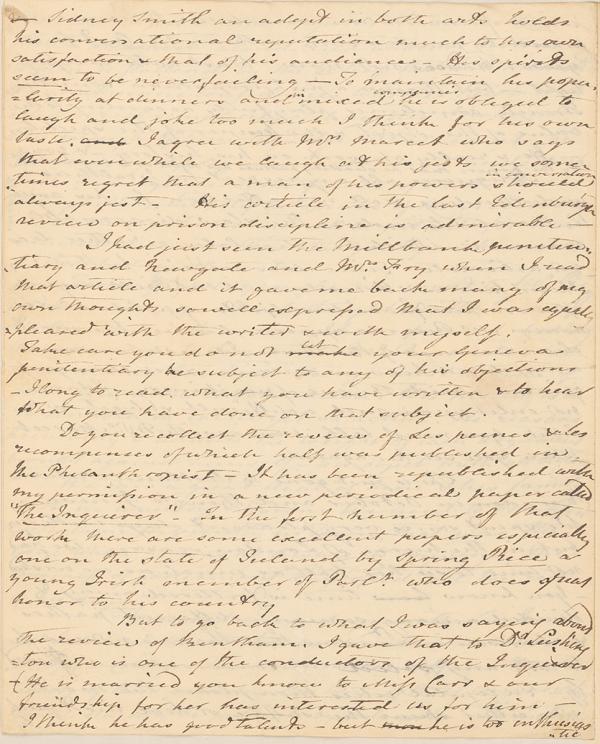 Sidney Smith an adept in both arts holds
his conversational reputation much to his own
satisfaction & that of his audience - His spirits
seem to be neverfailing - To maintain his popu-
-larity at dinners and in mixed companies he is obliged to
laugh and joke too much I think for his own
taste. and I agree with Mrs. Marcet who says
that even while we laugh at his jests we some-
times regret that a man of his powers should in conversation
always jest - His article in the last Edinburgh
review on prison discipline is admirable -
I had just seen the Millbank peniten-
tiary and Newgate and Mrs. Fry when I read
that article and it gave me back many of my
own thoughts so well expressed that I was equally
pleased with the writer & with myself.
Take care you do not let your Geneva
penitentiary be subject to any of his objections
- I long to read what you have written & to hear
what you have done on that subject.
Do you recollect the review of Les peines & les
recompences of which half was published in
the Philanthropist - It has been republished with
my permission in a new periodical paper called
"The Inquirer" - In the first number of that
work there are some excellent papers especially
one on the state of Ireland by Spring Rice a
young Irish member of Parlt. who does great
honor to his country
But to go back to what I was saying about
the review of Bentham. I gave that to Dr. Lushing-
-ton who is one of the conductors of the Inquirer
- He is married you know to Miss Carr & our
friendship for her has interested us for him -
I think he has good talents - but he is too enthusias-
-tic